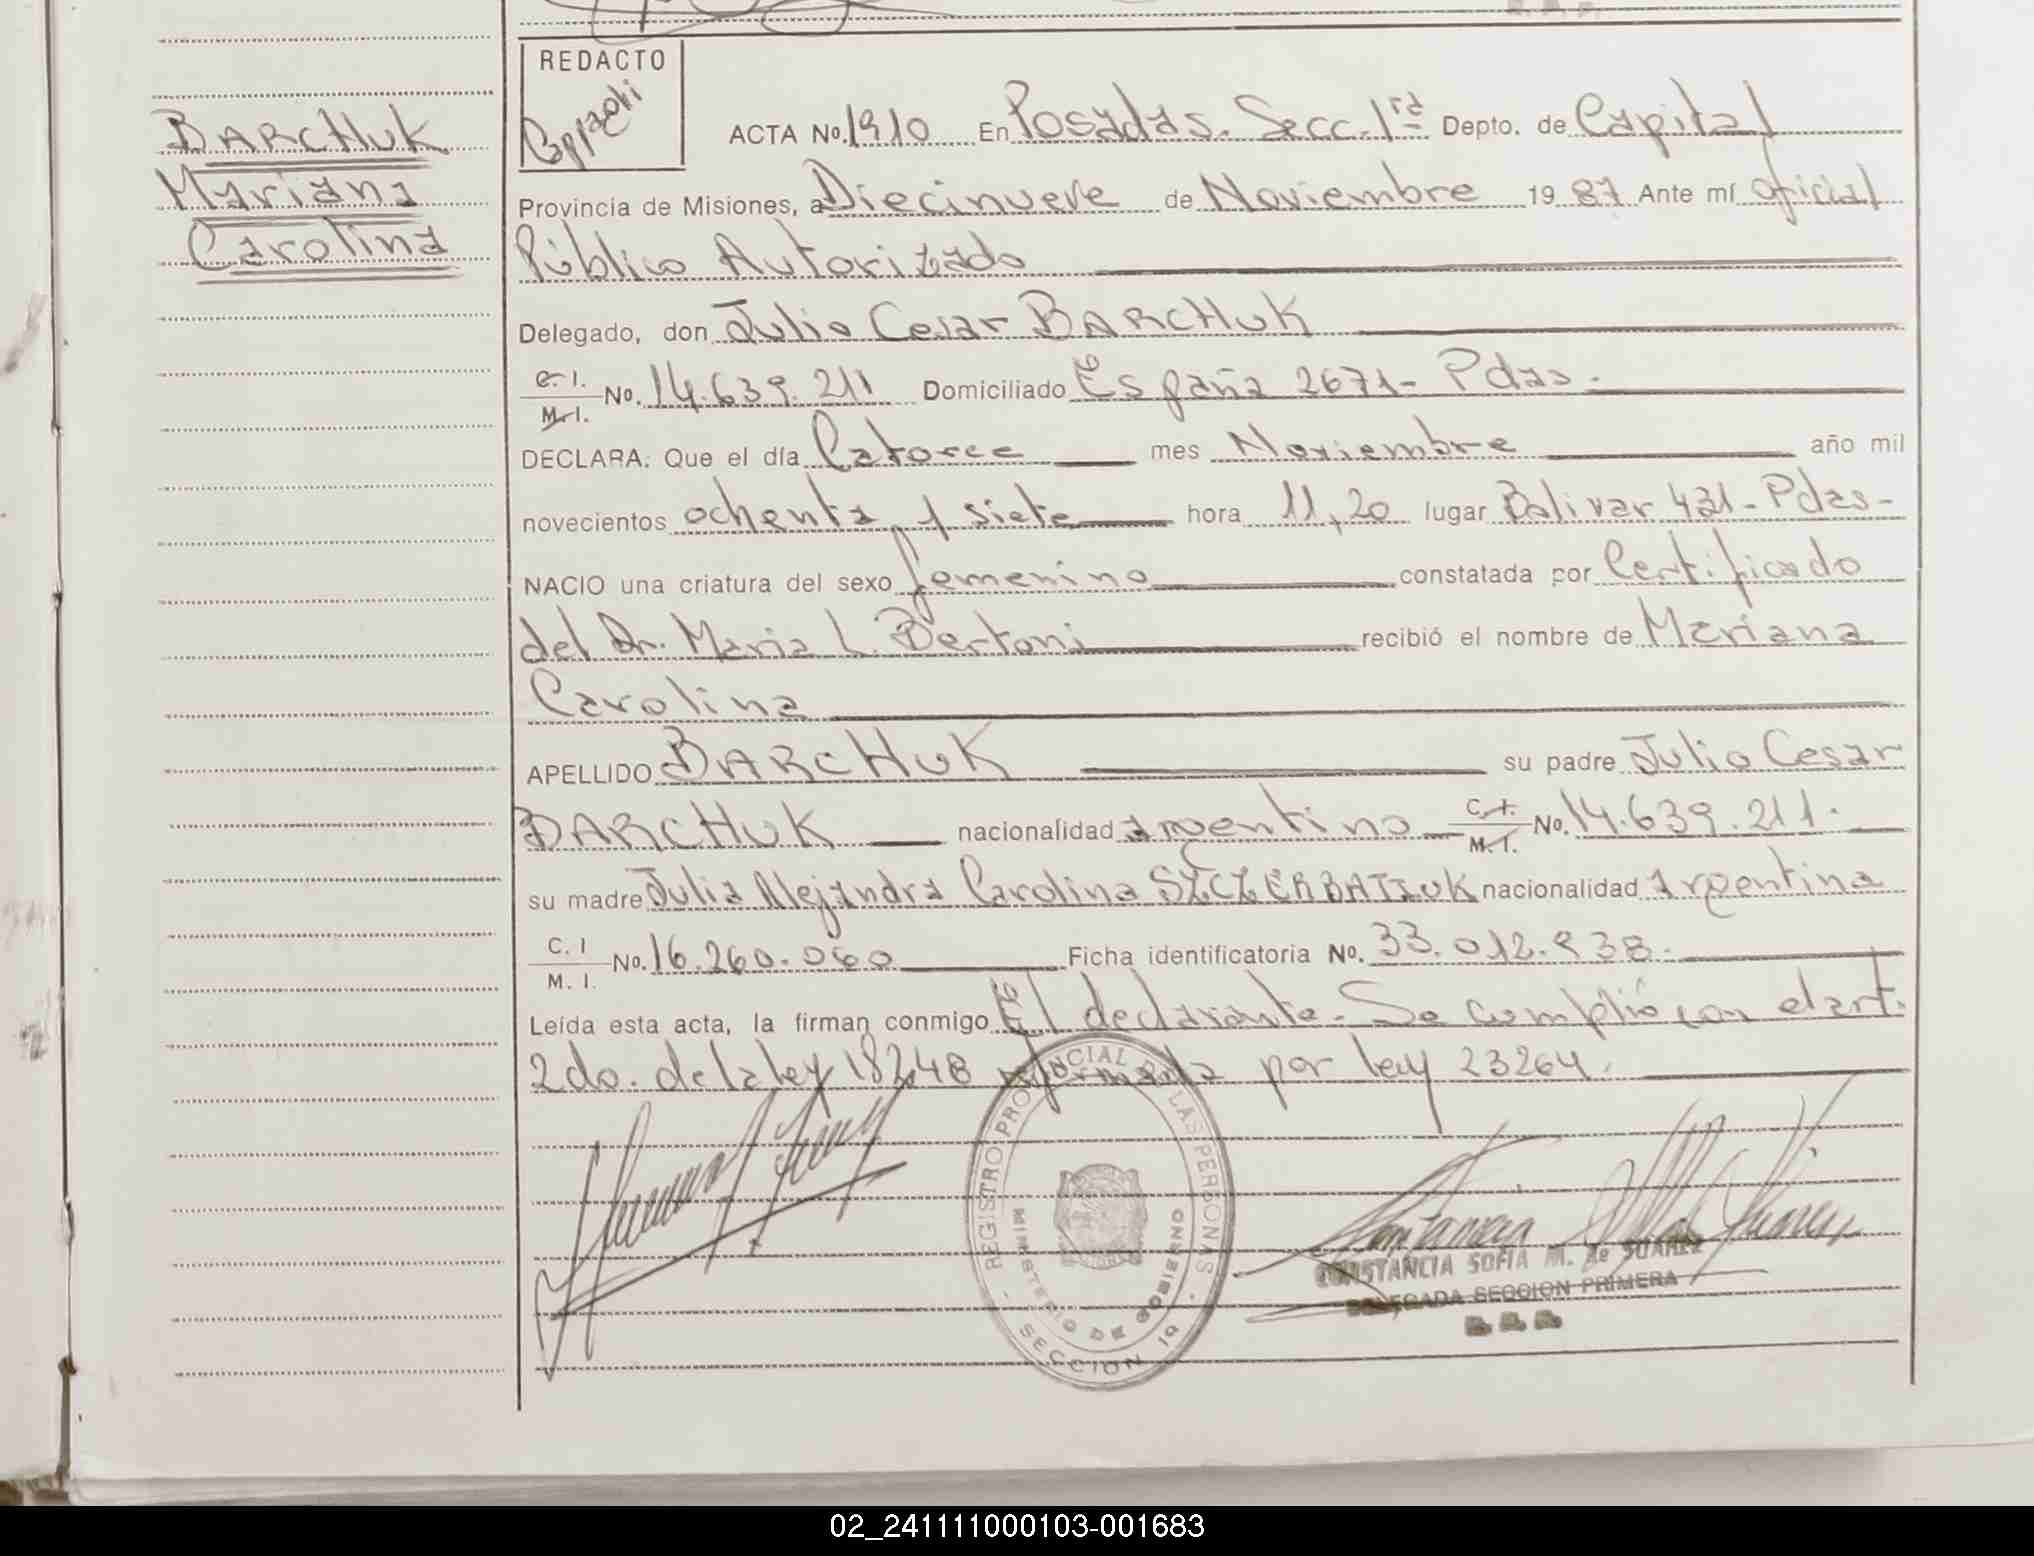 BARCHUK
Mariana
Carolina
REDACTO
ACTA No. 1910 En Posadas. Secc. 1ra Depto. de Capital
Provincia de Misiones, a Diecinueve de Noviembre 1987 Ante mí oficial
Público Autorizado
Delegado, don Julio Cesar BARCHUK
C. I. M. I. No. 14.639.211 Domiciliado España 2671- Pdas.
DECLARA: Que el día Catorce mes Noviembre año mil
novecientos ochenta y siete hora 11,20 lugar Bolivar 421- Pdas-
NACIO una criatura del sexo femenino constatada por Certificado
del Dr. Maria L. Bertoni recibió el nombre de Mariana
Carolina
APELLIDO BARCHUK su padre Julio Cesar
BARCHUK nacionalidad argentino C. I. M. I. No. 14.639.211.
su madre Julia Alejandra Carolina SZCZERBATIUK nacionalidad argentina
C. I M. I. No. 16.260.060 Ficha identificatoria No. 33.012.938.
Leída esta acta, la firman conmigo El declarante. Se cumplió con el art.
2do. de la ley 18248 reformada por ley 23264.
REGISTRO PROVINCIAL DE LAS PERSONAS
MINISTERIO DE GOBIERNO
SECCION 1a
CONSTANCIA SOFIA M. de SUAREZ
DELEGADA SECCION PRIMERA
02_241111000103-001683